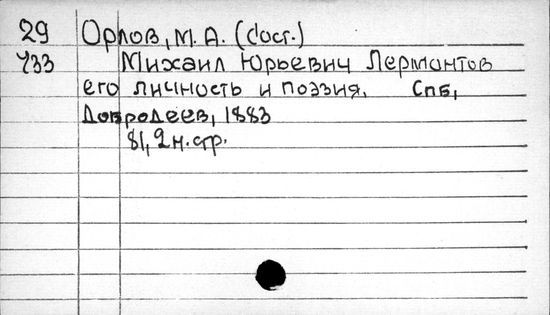 29 Орлов, М. А. (сост.)
733 Михаил Юрьевич Лермонтов
его личность и поэзия. Спб,
Добродеев, 1883
81, 2 н. стр.